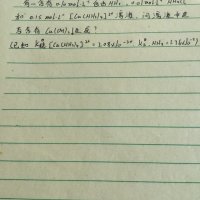 有一含有 0.10 mol·L⁻¹ 自由NH₃、0.01 mol·L⁻¹ NH₄Cl
和 0.15 mol·L⁻¹ [Cu(NH₃)₄]²⁺ 溶液,问溶液中是
否有 Cu(OH)₂ 生成?
(已知 [Cu(NH₃)₄]²⁺ = 2.08×10 NH₃